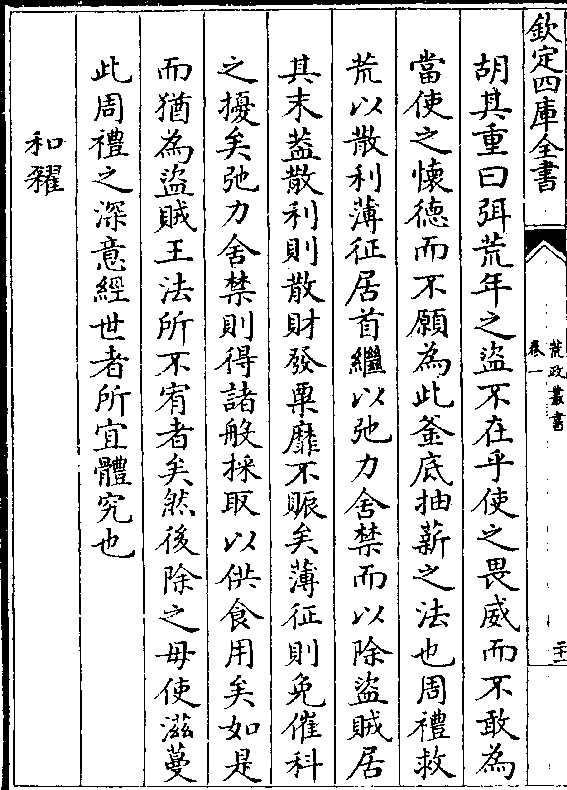 欽定四庫全書
荒政叢書
卷一
二十一
胡其重曰弭荒年之盜不在乎使之畏威而不敢為
當使之懷德而不願為此釜底抽薪之法也周禮救
荒以散利薄征居首繼以弛力舍禁而以除盜賊居
其末葢散利則散財發粟靡不賑矣薄征則免催科
之擾矣弛力舍禁則得諸般採取以供食用矣如是
而猶為盜賊王法所不宥者矣然後除之毋使滋蔓
此周禮之深意經世者所宜體究也
和糴